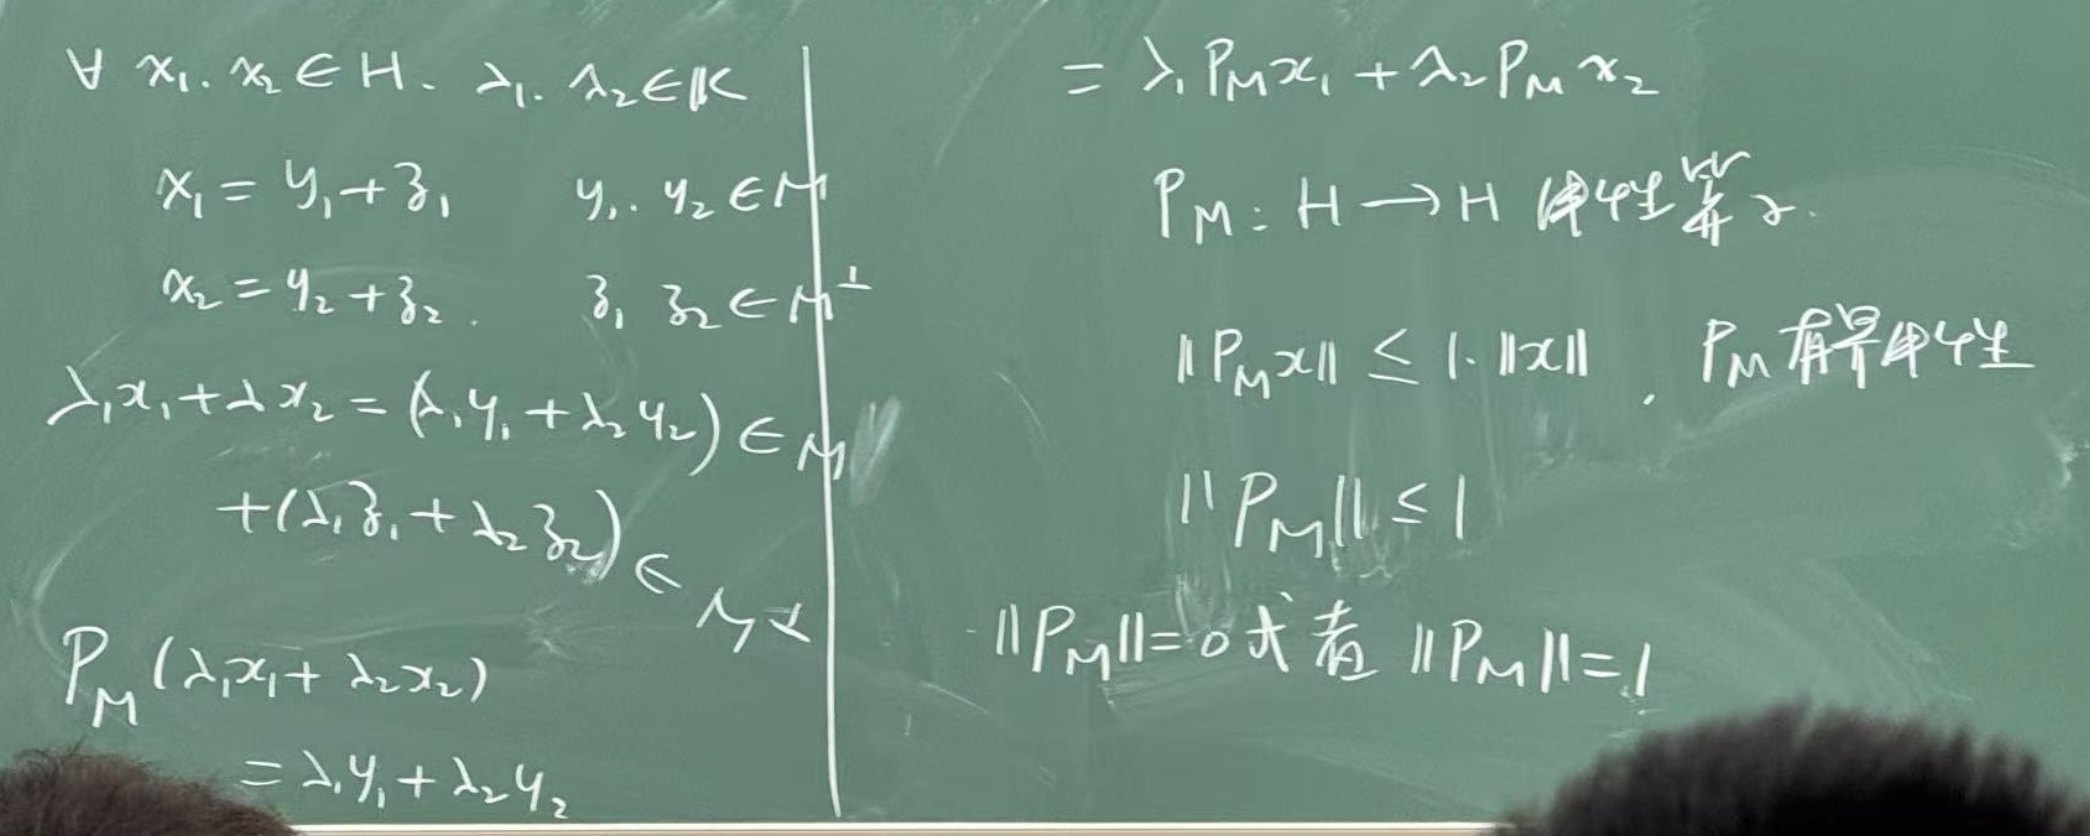 ∀ x₁. x₂ ∈ H. λ₁. λ₂ ∈ 𝕂
x₁ = y₁ + z₁ y₁. y₂ ∈ M
x₂ = y₂ + z₂. z₁ z₂ ∈ M^⊥
λ₁x₁ + λx₂ = (λ₁y₁ + λ₂y₂) ∈ M
+ (λ₁z₁ + λ₂z₂) ∈ M^⊥
P_M (λ₁x₁ + λ₂x₂)
= λ₁y₁ + λ₂y₂
= λ₁P_M x₁ + λ₂P_M x₂
P_M : H → H 线性算子.
‖P_M x‖ ≤ 1·‖x‖, P_M 有界线性
‖P_M‖ ≤ 1
‖P_M‖ = 0 或者 ‖P_M‖ = 1